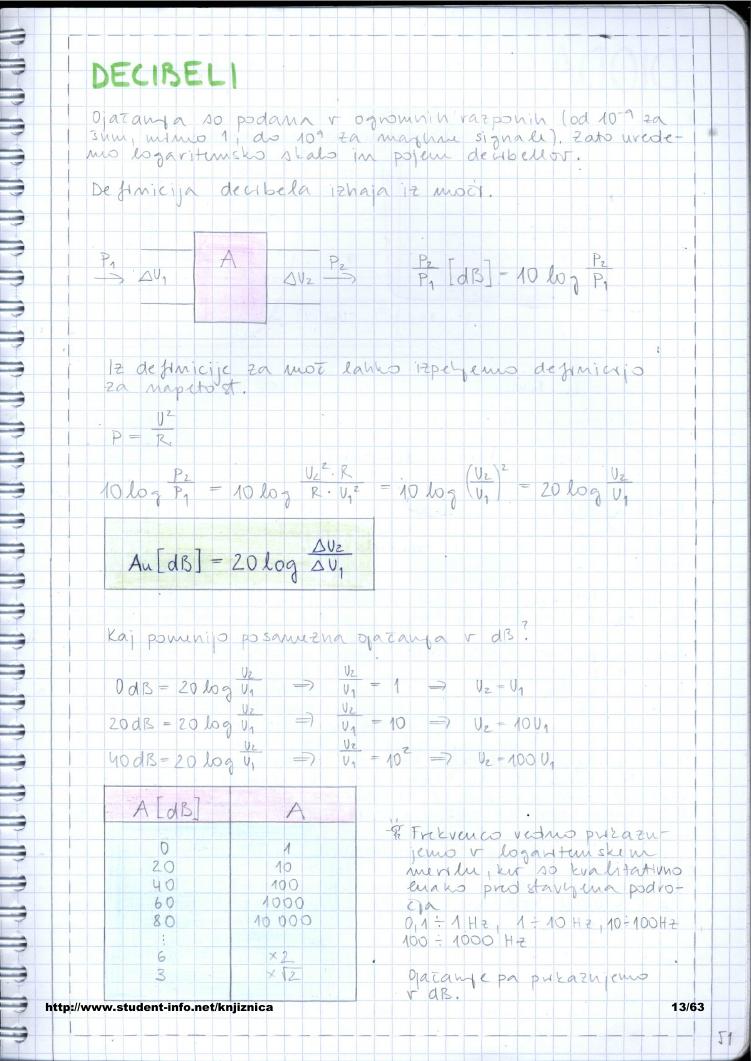 DECIBELI
Ojačanja so podana v ogromnih razponih (od 10⁻⁹ za
šum, mimo 1, do 10⁹ za majhne signale). Zato uvede-
mo logaritemsko skalo in pojem decibelov.
Definicija decibela izhaja iz moči.
P₁ → ΔU₁ A ΔU₂ P₂ → P₂/P₁ [dB] = 10 log P₂/P₁
Iz definicije za moč lahko izpeljemo definicijo
za napetost.
P = U²/R
10 log P₂/P₁ = 10 log U₂²·R/R·U₁² = 10 log (U₂/U₁)² = 20 log U₂/U₁
Au [dB] = 20 log ΔU₂/ΔU₁
Kaj pomenijo posamezna ojačanja v dB?
0 dB = 20 log U₂/U₁ ⇒ U₂/U₁ = 1 ⇒ U₂ = U₁
20 dB = 20 log U₂/U₁ ⇒ U₂/U₁ = 10 ⇒ U₂ = 10 U₁
40 dB = 20 log U₂/U₁ ⇒ U₂/U₁ = 10² ⇒ U₂ = 100 U₁
A [dB] A
0 1
20 10
40 100
60 1000
80 10 000
⋮
6 ×2
3 ×√2
* Frekvenco vedno prikazu-
jemo v logaritemskem
merilu, ker so kvalitativno
enako predstavljena podro-
čja
0,1 ÷ 1 Hz, 1 ÷ 10 Hz, 10 ÷ 100 Hz
100 ÷ 1000 Hz
Ojačanje pa prikazujemo
v dB.
http://www.student-info.net/knjiznica 13/63
51